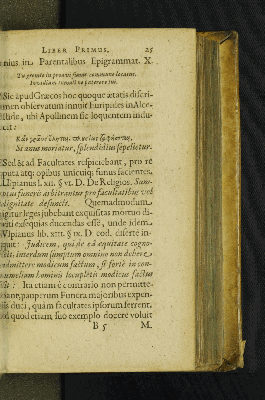 LIBER PRIMUS. 25
nius in Parentalibus Epigrammat. X.
Tu gremio in proavi funus commune locatus,
Invidiam tumuli ne paterere tui.
Sic apud Græcos hoc quoque ætatis discri-
men observatum innuit Euripides in Alce-
stide, ubi Apollinem sic loquentem indu-
cit:
Si anus moriatur, splendidius sepelietur.
Sed & ad Facultates respiciebant, pro re
puta atq; opibus unicuiq; funus facientes.
Ulpianus l. xii. §. vi. D. De Religios. Sum-
ptus funeris arbitrantur pro facultatibus vel
dignitate defuncti. Quemadmodum
igitur leges jubebant exquisitas mortuo di-
viti exsequias ducendas esse, unde idem
Ulpianus lib. xiii. § ix. D. eod. diserte in-
quit: Judicem, qui de ea æquitate cogno-
scit, interdum sumptum omnino non debere
admittere modicum factum, si fortè in con-
tumeliam hominis locupletis modicus factus
sit: Ita etiam è contrario non permitte-
bant, pauperum Funera majoribus expen-
sis duci, quàm facultates ipsorum ferrent.
Id quod etiam suo exemplo docere voluit
B 5 M.